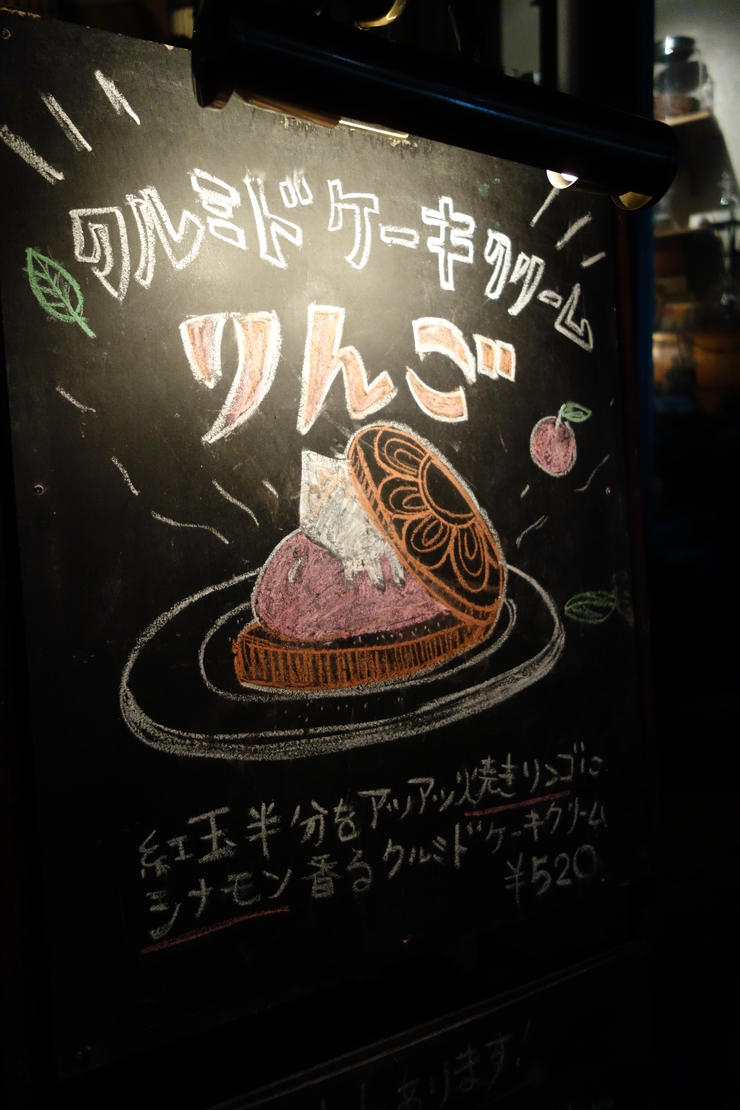 クルミドケーキクリーム
りんご
紅玉半分をアツアツ焼きリンゴに
シナモン香るクルミドケーキクリーム
¥520
あります!